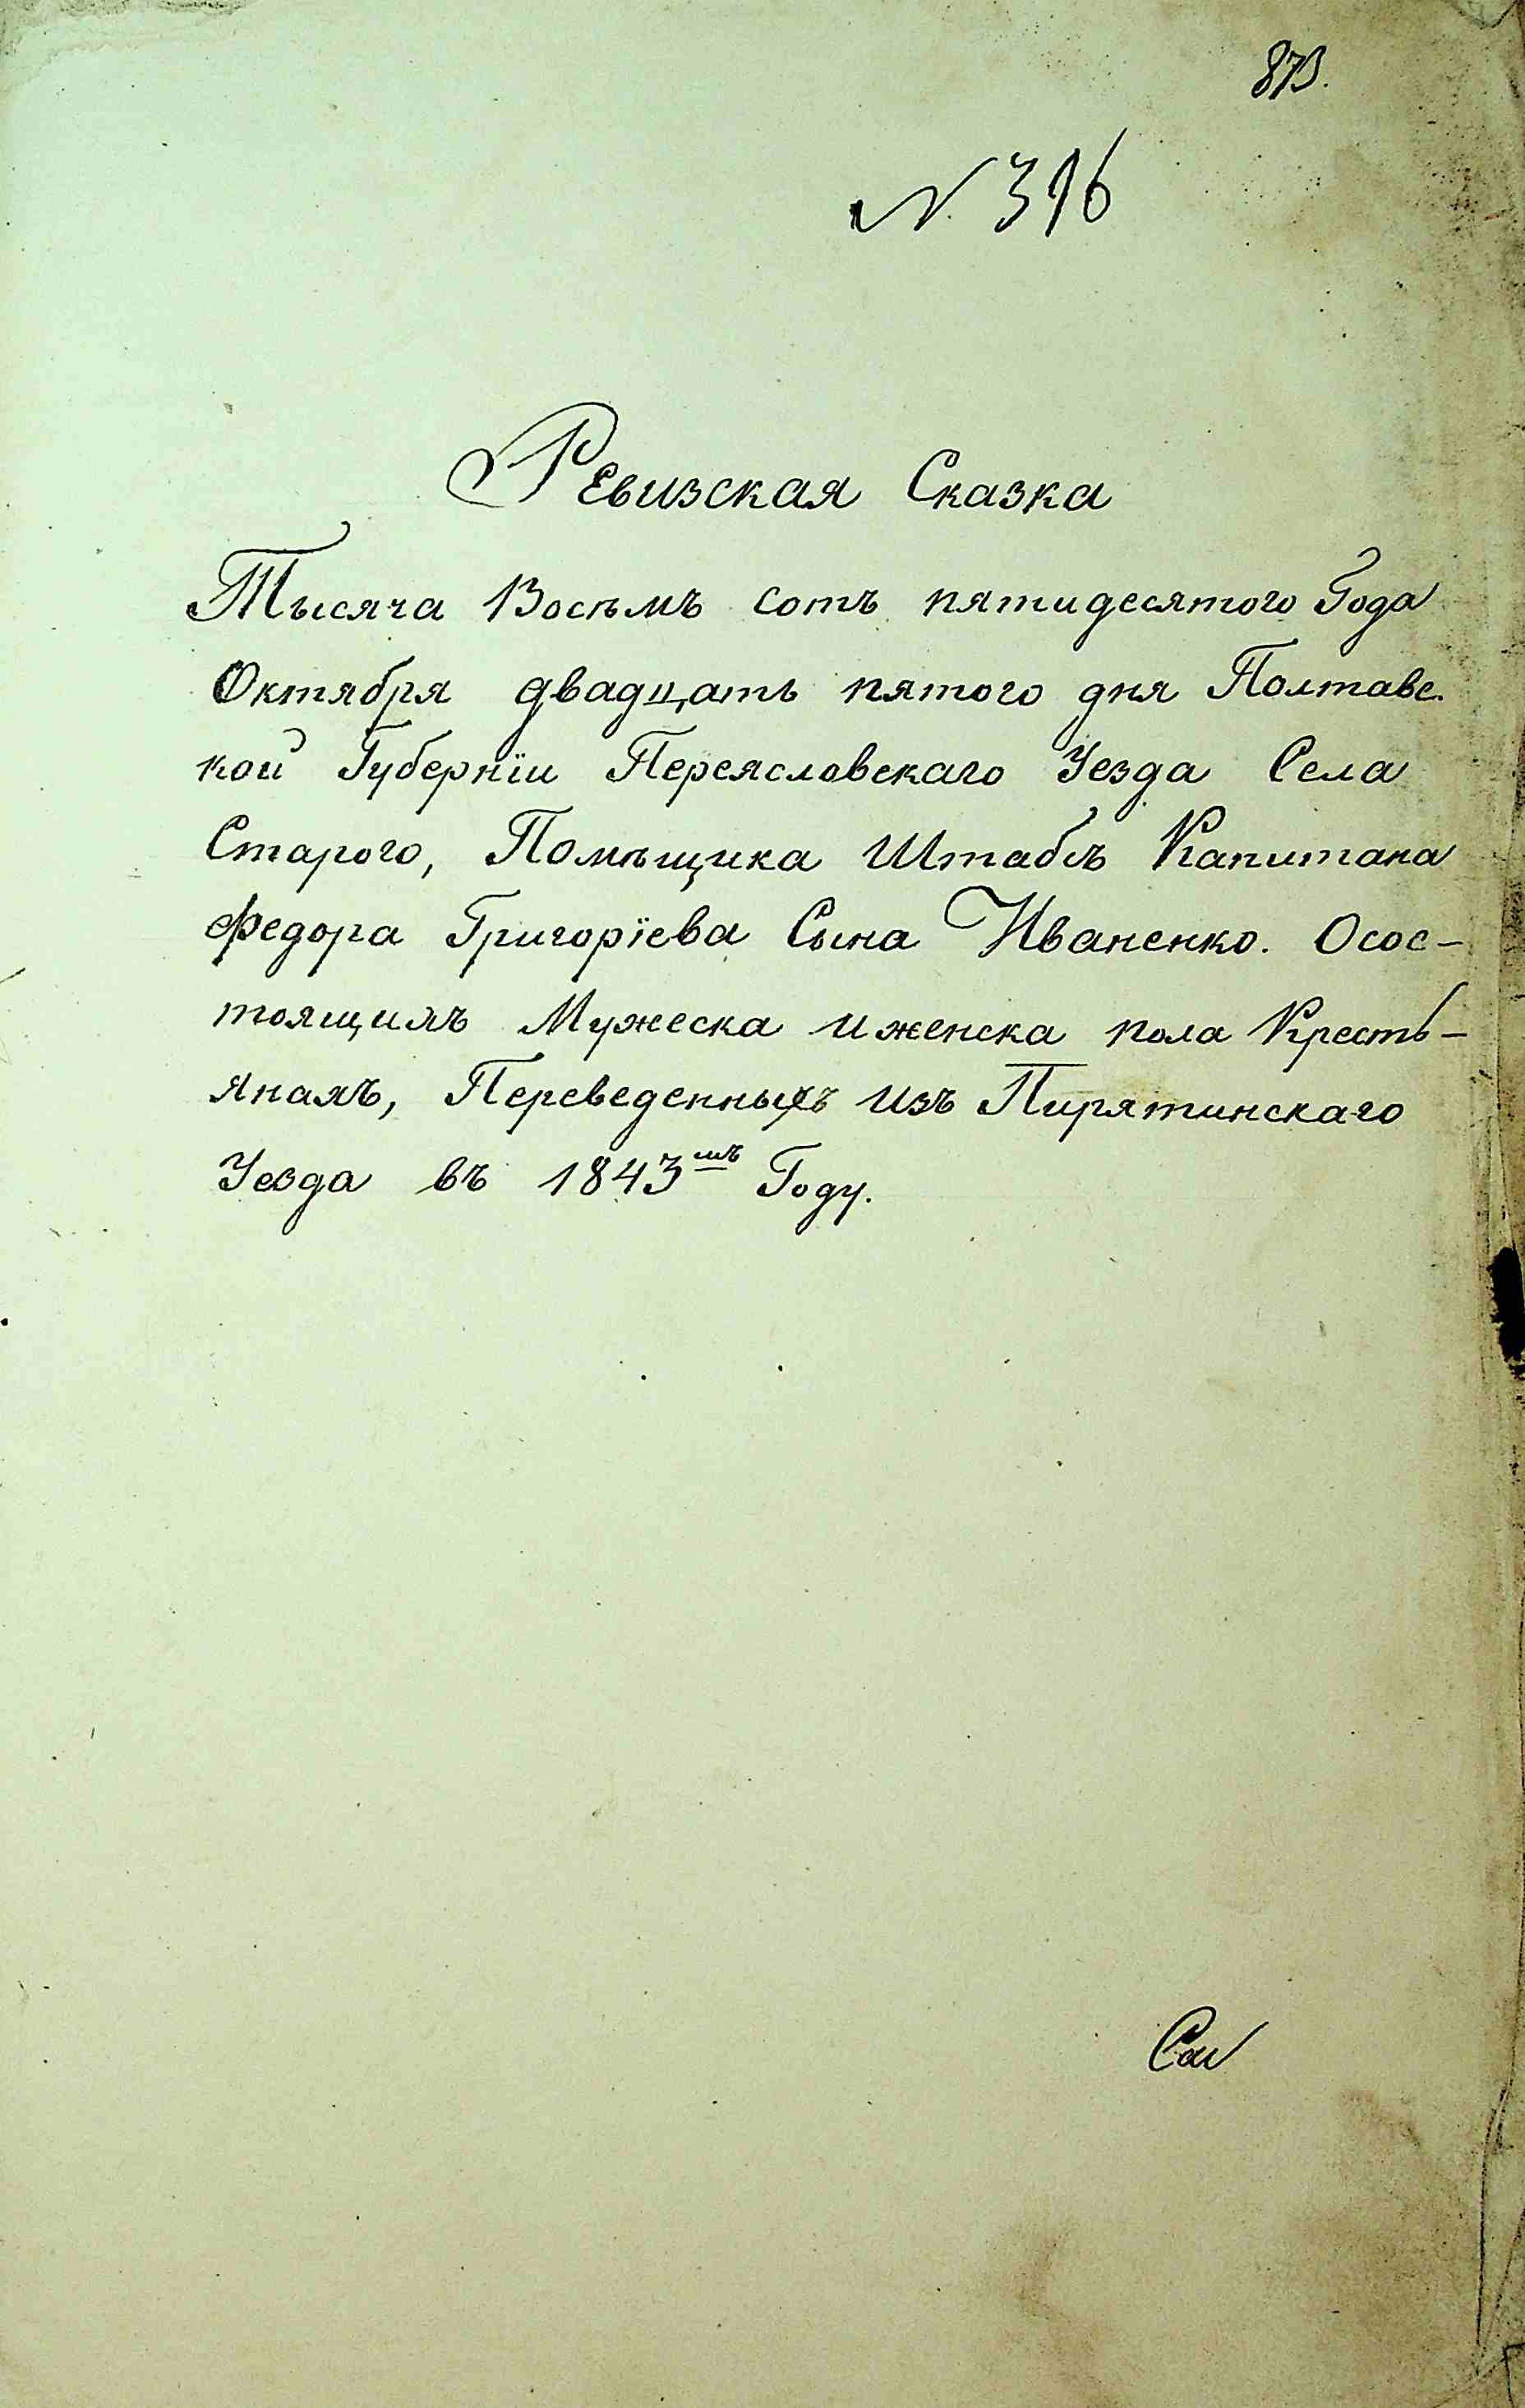 873.
N. 316
Ревизская Сказка
Тысяча Восѣмъ сотъ пятидесятого Года
Октября двадцать пятого дня Полтавс-
кой Губернїи Переясловскаго Уезда Села
Старого, Помѣщика Штабсъ Капитана
Федора Григорїева Сына Иваненко. Осос-
тоящихъ Мужеска иженска пола Кресть-
янахъ, Переведенныхъ изъ Пирятинскаго
Уезда въ 1843мъ Году.